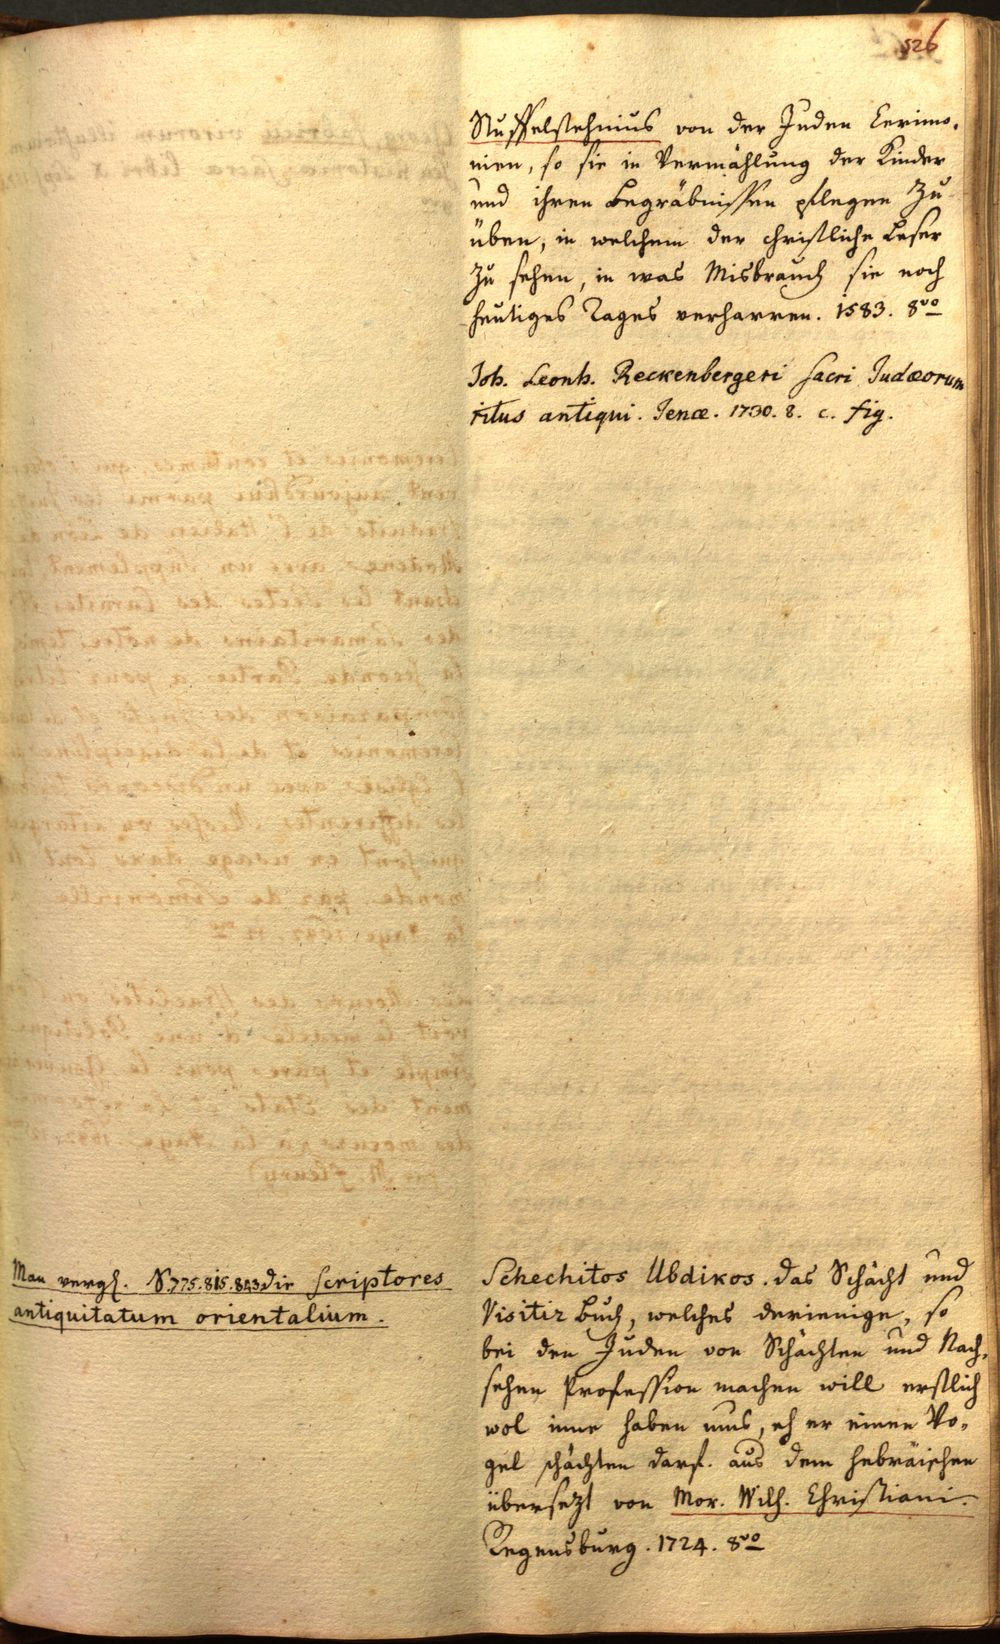 526
Nuffelstehnius von der Juden Cerimo-
nien, so sie in Vermählung der Kinder
und ihren Begräbnissen pflegen zu
üben, in welchem der christliche Leser
zu sehen, in was Misbrauch sie noch
heutiges Tages verharren. 1583. 8vo
Joh. Leonh. Reckenbergeri sacri Judæorum
ritus antiqui. Jenæ. 1730. 8. c. fig.
Man vergl. S. 775. 815. 843 die scriptores
antiquitatum orientalium.
Schechitos Ubdikos. das Schächt und
Visitir Buch, welches derienige, so
bei den Juden von Schächten und Nach-
sehen Profession machen will erstlich
wol inne haben mus, eh er einen Vo-
gel schächten darf. aus dem hebräischen
übersetzt von Mor. Wilh. Christiani.
Regensburg. 1724. 8vo